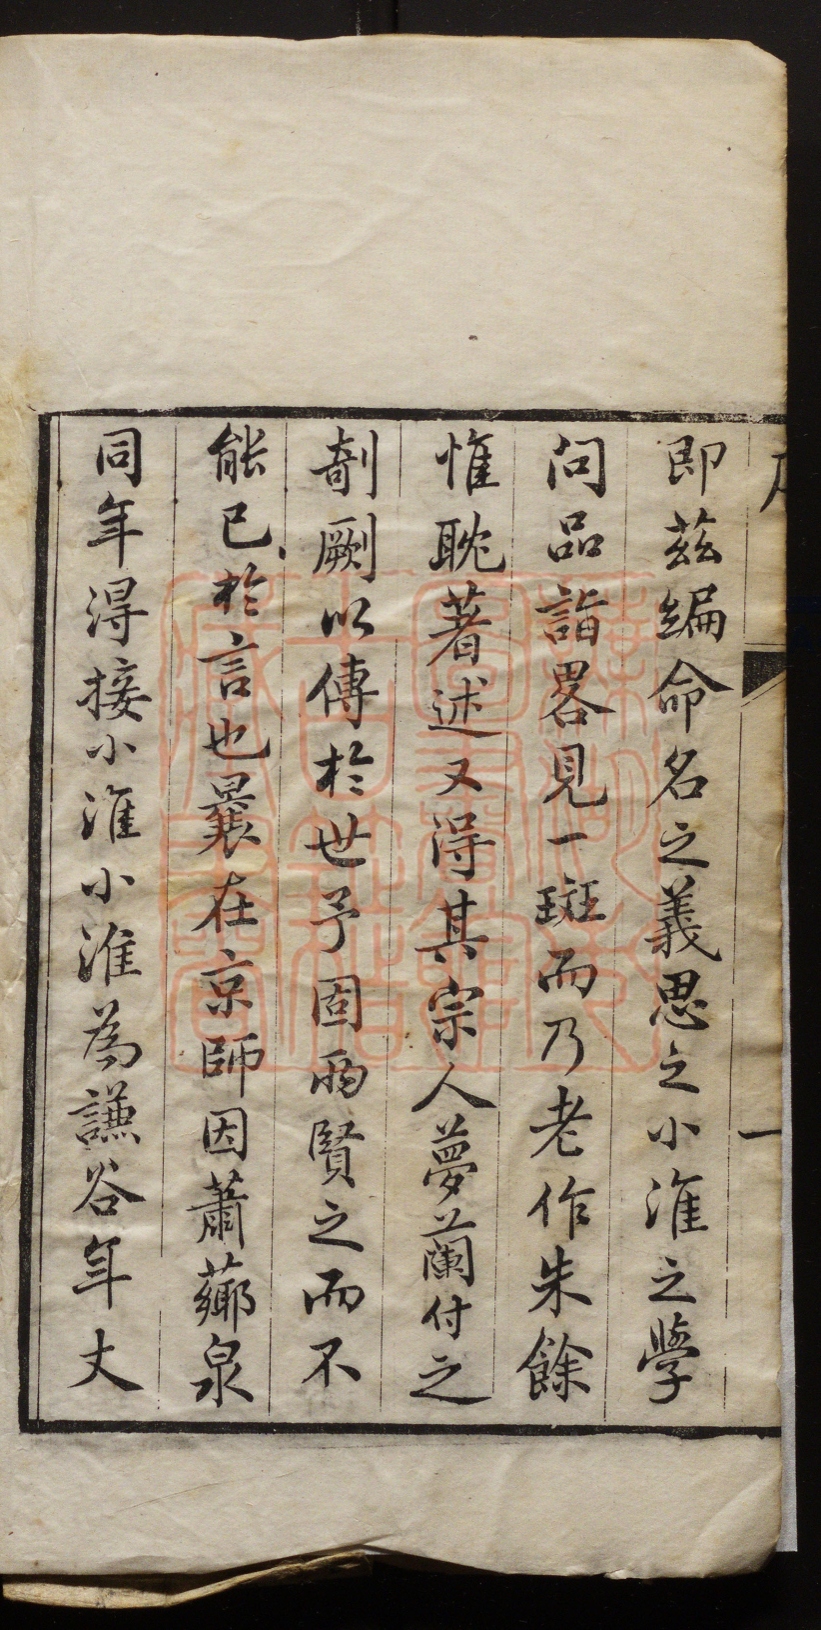 即茲編命名之義思之小淮之學
問品詣畧見一斑而乃老作朱餘
惟耽著述又得其宗人夢蘭付之
剞劂以傳於世予固兩賢之而不
能已於言也曩在京師因蕭薌泉
同年得接小淮小淮為謙谷年丈
一